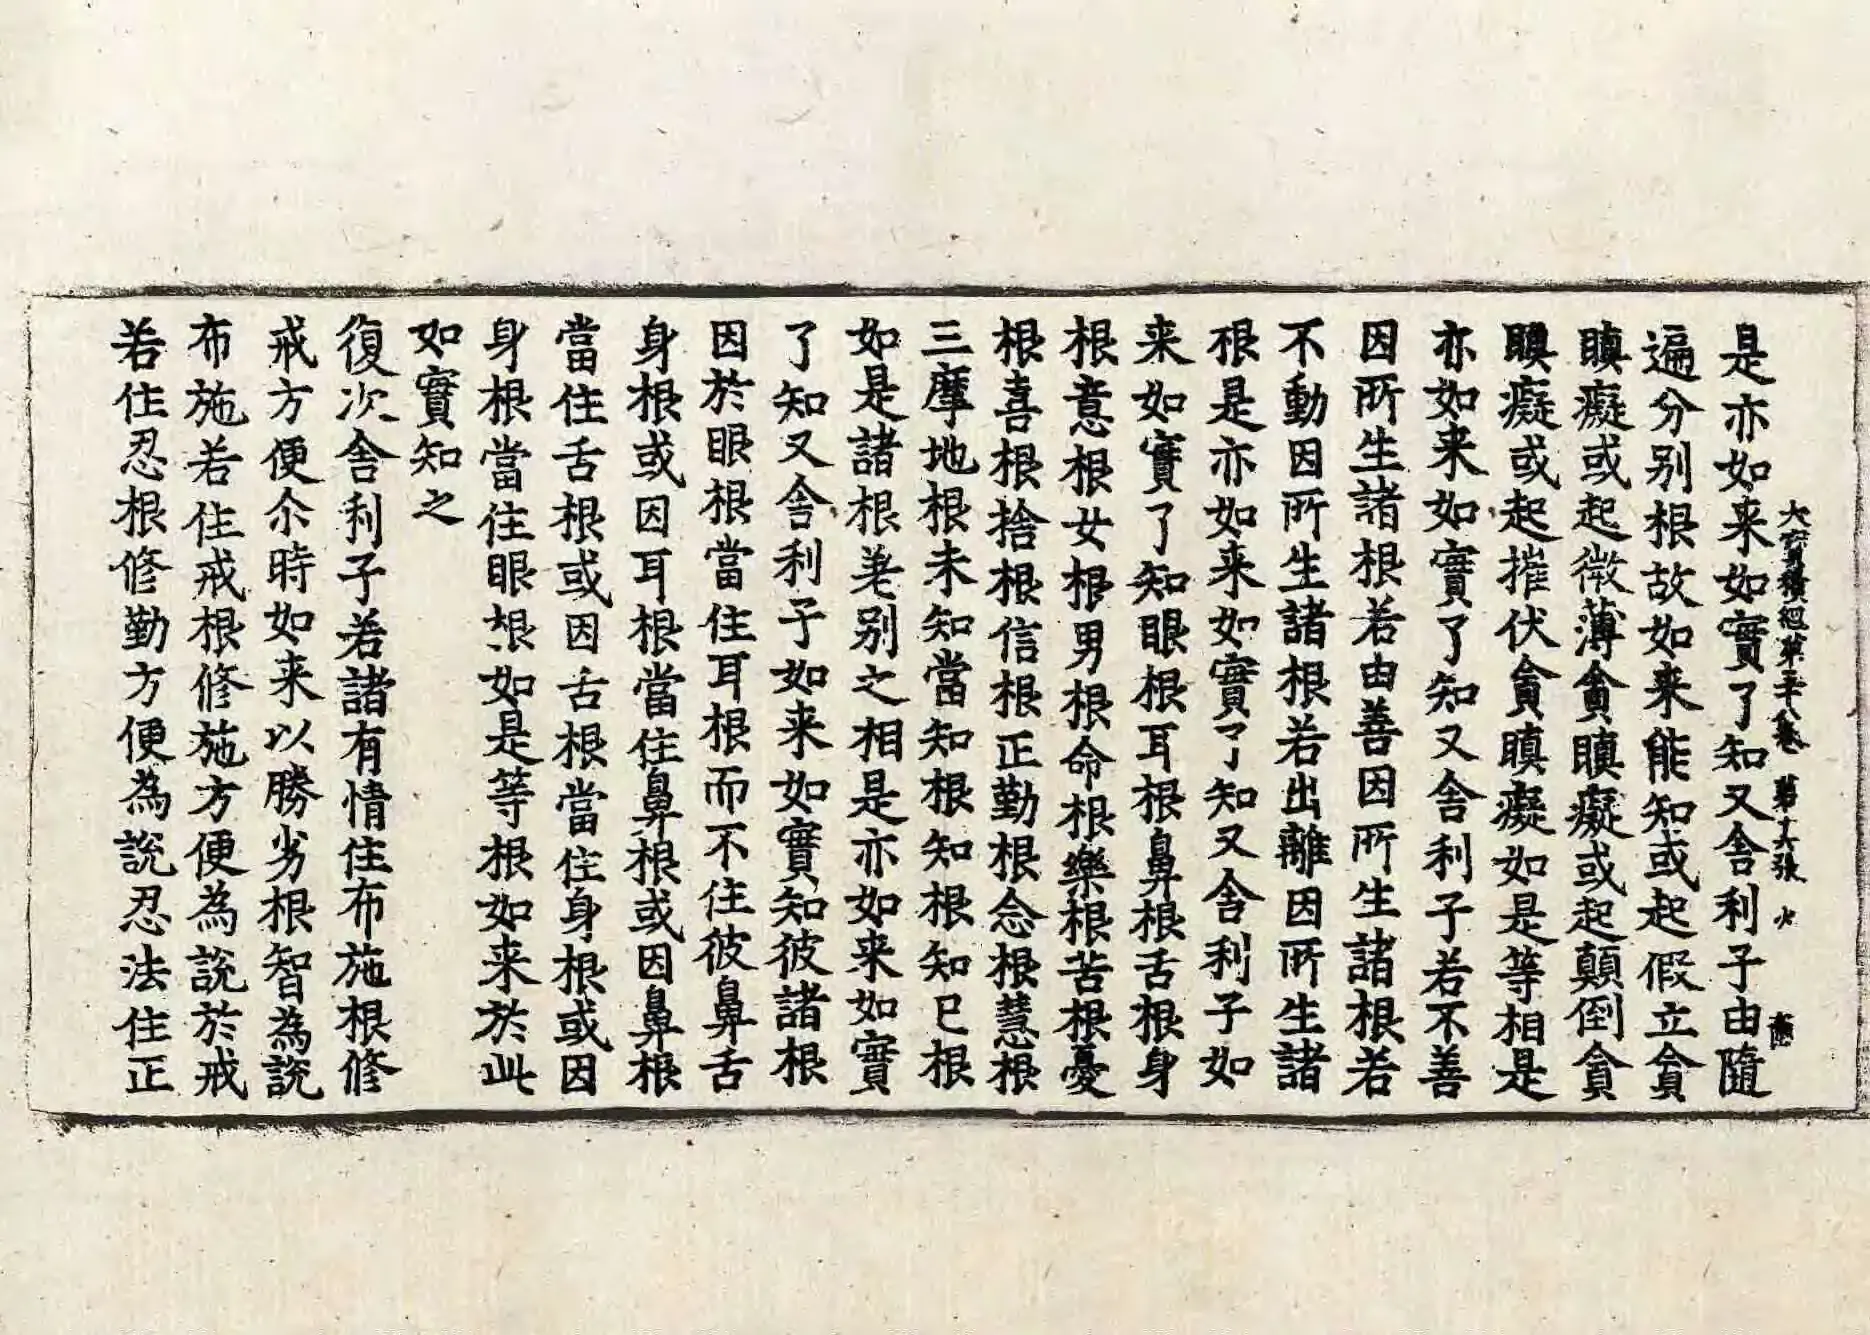 大寳積經第三十八卷 第十六張 火
是亦如来如實了知又舍利子由隨
遍分别根故如来能知或起假立貪
瞋癡或起微薄貪瞋癡或起顛倒貪
瞋癡或起摧伏貪瞋癡如是等相是
亦如来如實了知又舍利子若不善
因所生諸根若由善因所生諸根若
不動因所生諸根若出離因所生諸
根是亦如来如實了知又舍利子如
来如實了知眼根耳根鼻根舌根身
根意根女根男根命根樂根苦根憂
根喜根捨根信根正勤根念根慧根
三摩地根未知當知根知根知已根
如是諸根差别之相是亦如来如實
了知又舍利子如来如實知彼諸根
因於眼根當住耳根而不住彼鼻舌
身根或因耳根當住鼻根或因鼻根
當住舌根或因舌根當住身根或因
身根當住眼根如是等根如来於此
如實知之
復次舍利子若諸有情住布施根修
戒方便尒時如来以勝劣根智為說
布施若住戒根修施方便為說於戒
若住忍根修勤方便為說忍法住正